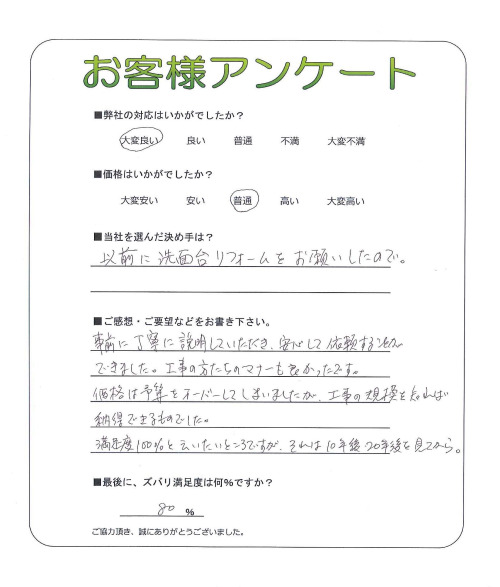 お客様アンケート
■弊社の対応はいかがでしたか？
大変良い 良い 普通 不満 大変不満
■価格はいかがでしたか？
大変安い 安い 普通 高い 大変高い
■当社を選んだ決め手は？
以前に洗面台リフォームをお願いしたので。
■ご感想・ご要望などをお書き下さい。
事前に丁寧に説明していただき、安心して依頼することが
できました。工事の方たちのマナーも良かったです。
価格は予算をオーバーしてしまいましたが、工事の規模を知れば
納得できるものでした。
満足度100%と云いたいところですが、それは10年後20年後を見てから。
■最後に、ズバリ満足度は何%ですか？
80 %
ご協力頂き、誠にありがとうございました。